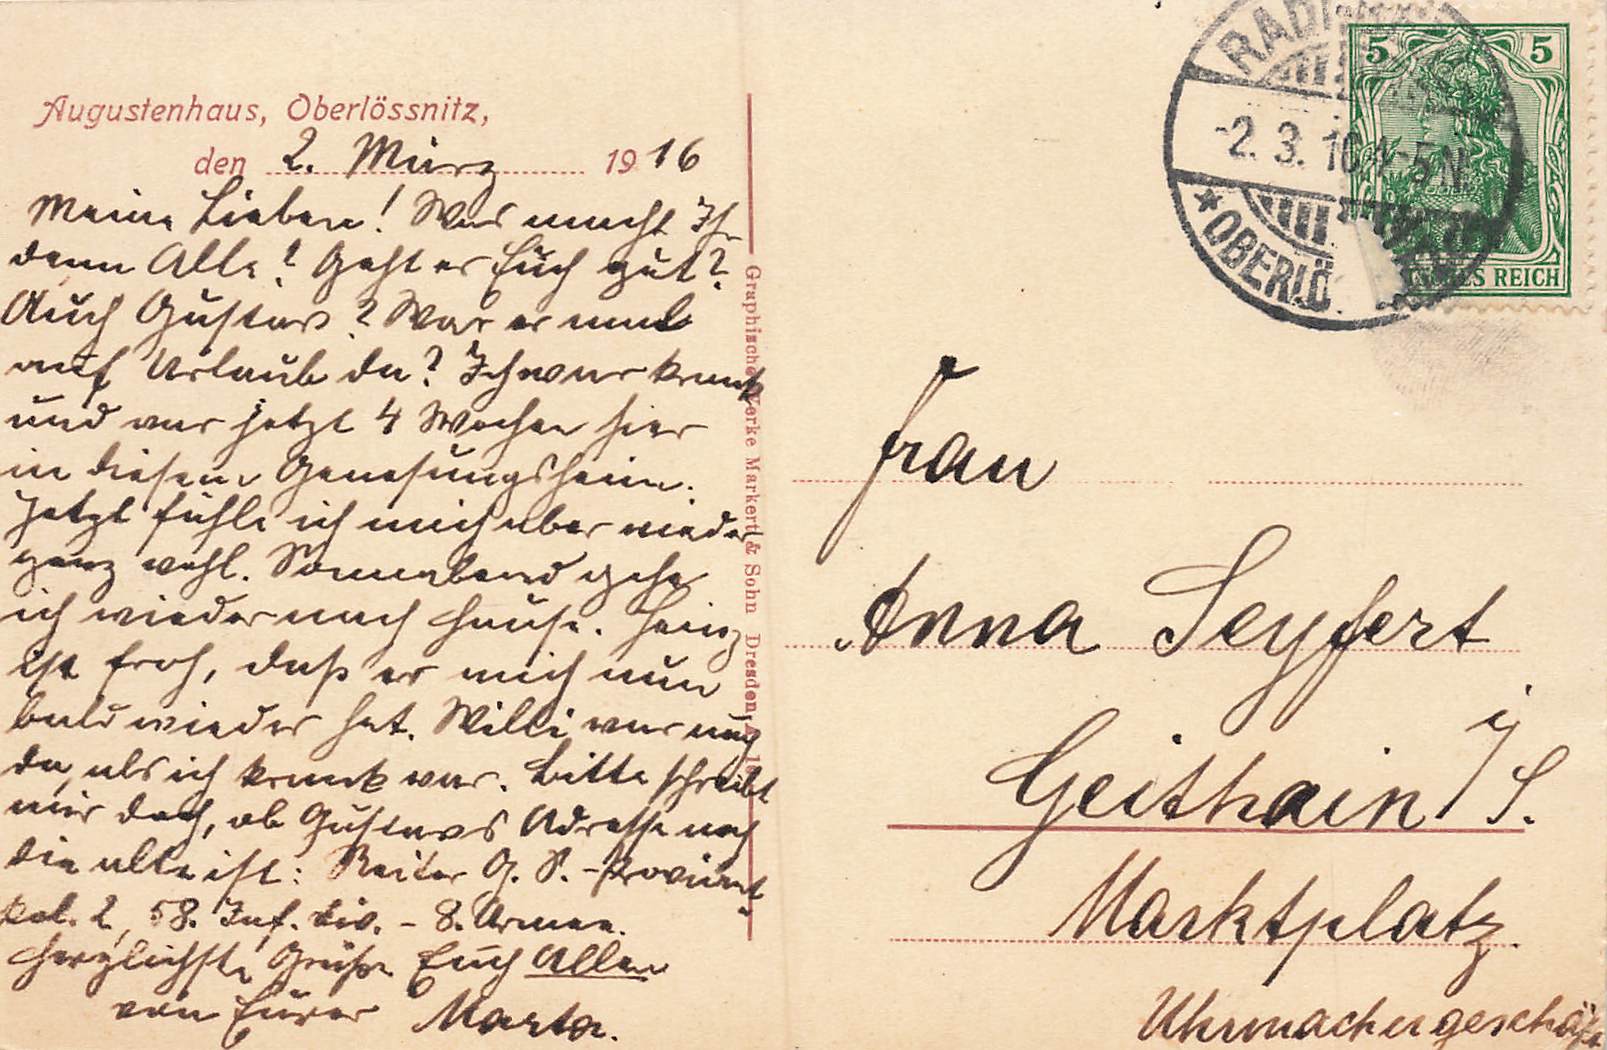 Augustenhaus, Oberlössnitz,
den 2. März 1916
Meine Lieben! Was macht Ihr
denn Alle? Geht es Euch gut?
Auch Gustav? War er mal
auf Urlaub da? Ich war krank
und war jetzt 4 Wochen hier
in diesem Genesungsheim.
Jetzt fühle ich mich aber wieder
ganz wohl. Sonnabend gehe
ich wieder nach Hause. Heinz
ist froh, daß er mich nun
bald wieder hat. Willi war auch
da, als ich krank war. Bitte schreibt
mir doch, ob Gustavs Adresse noch
die alte ist: Reiter G. S. - Proviant
kol. 2, 58. Inf. Div. - 8. Armee.
Herzlichste Grüße Euch Allen
von Eurer Marta.
Graphische Werke Markert & Sohn Dresden
RADEB
-2. 3. 16. 4-5 N.
* OBERLÖ
5 5
REICH
Frau
Anna Seyfert
Geithain i/S.
Marktplatz.
Uhrmachergeschäft